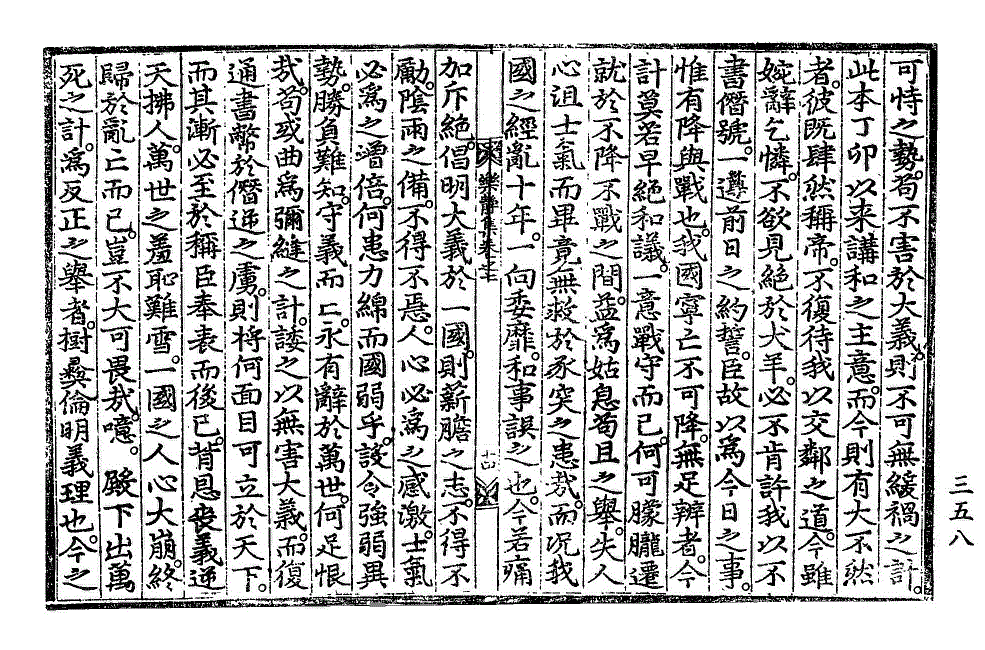 可恃之勢。苟不害於大義。則不可無緩禍之計。
此本丁卯以來講和之主意。而今則有大不然
者。彼既肆然稱帝。不復待我以交鄰之道。今雖
婉辭乞憐。不欲見絶於犬羊。必不肯許我以不
書僭號。一遵前日之約誓。臣故以爲今日之事。
惟有降與戰也。我國寧亡不可降。無足辨者。今
計莫若早絶和議。一意戰守而已。何可朦朧遷
就於不降不戰之間。益爲姑息苟且之擧。失人
心沮士氣而畢竟無救於豕突之患哉。而况我
國之經亂十年。一向委靡。和事誤之也。今若痛
樂靜集卷之三
十四
加斥絶。倡明大義於一國。則薪膽之志。不得不
勵。陰雨之備。不得不急。人心必爲之感激。士氣
必爲之增倍。何患力綿而國弱乎。設令強弱異
勢。勝負難知。守義而亡。永有辭於萬世。何足恨
哉。苟或曲爲彌縫之計。諉之以無害大義。而復
通書幣於僭逆之虜。則將何面目可立於天下。
而其漸必至於稱臣奉表而後已。背恩喪義逆
天拂人。萬世之羞恥難雪。一國之人心大崩。終
歸於亂亡而已。豈不大可畏哉。噫。殿下出萬
死之計。爲反正之擧者。樹彛倫明義理也。今之
三五八